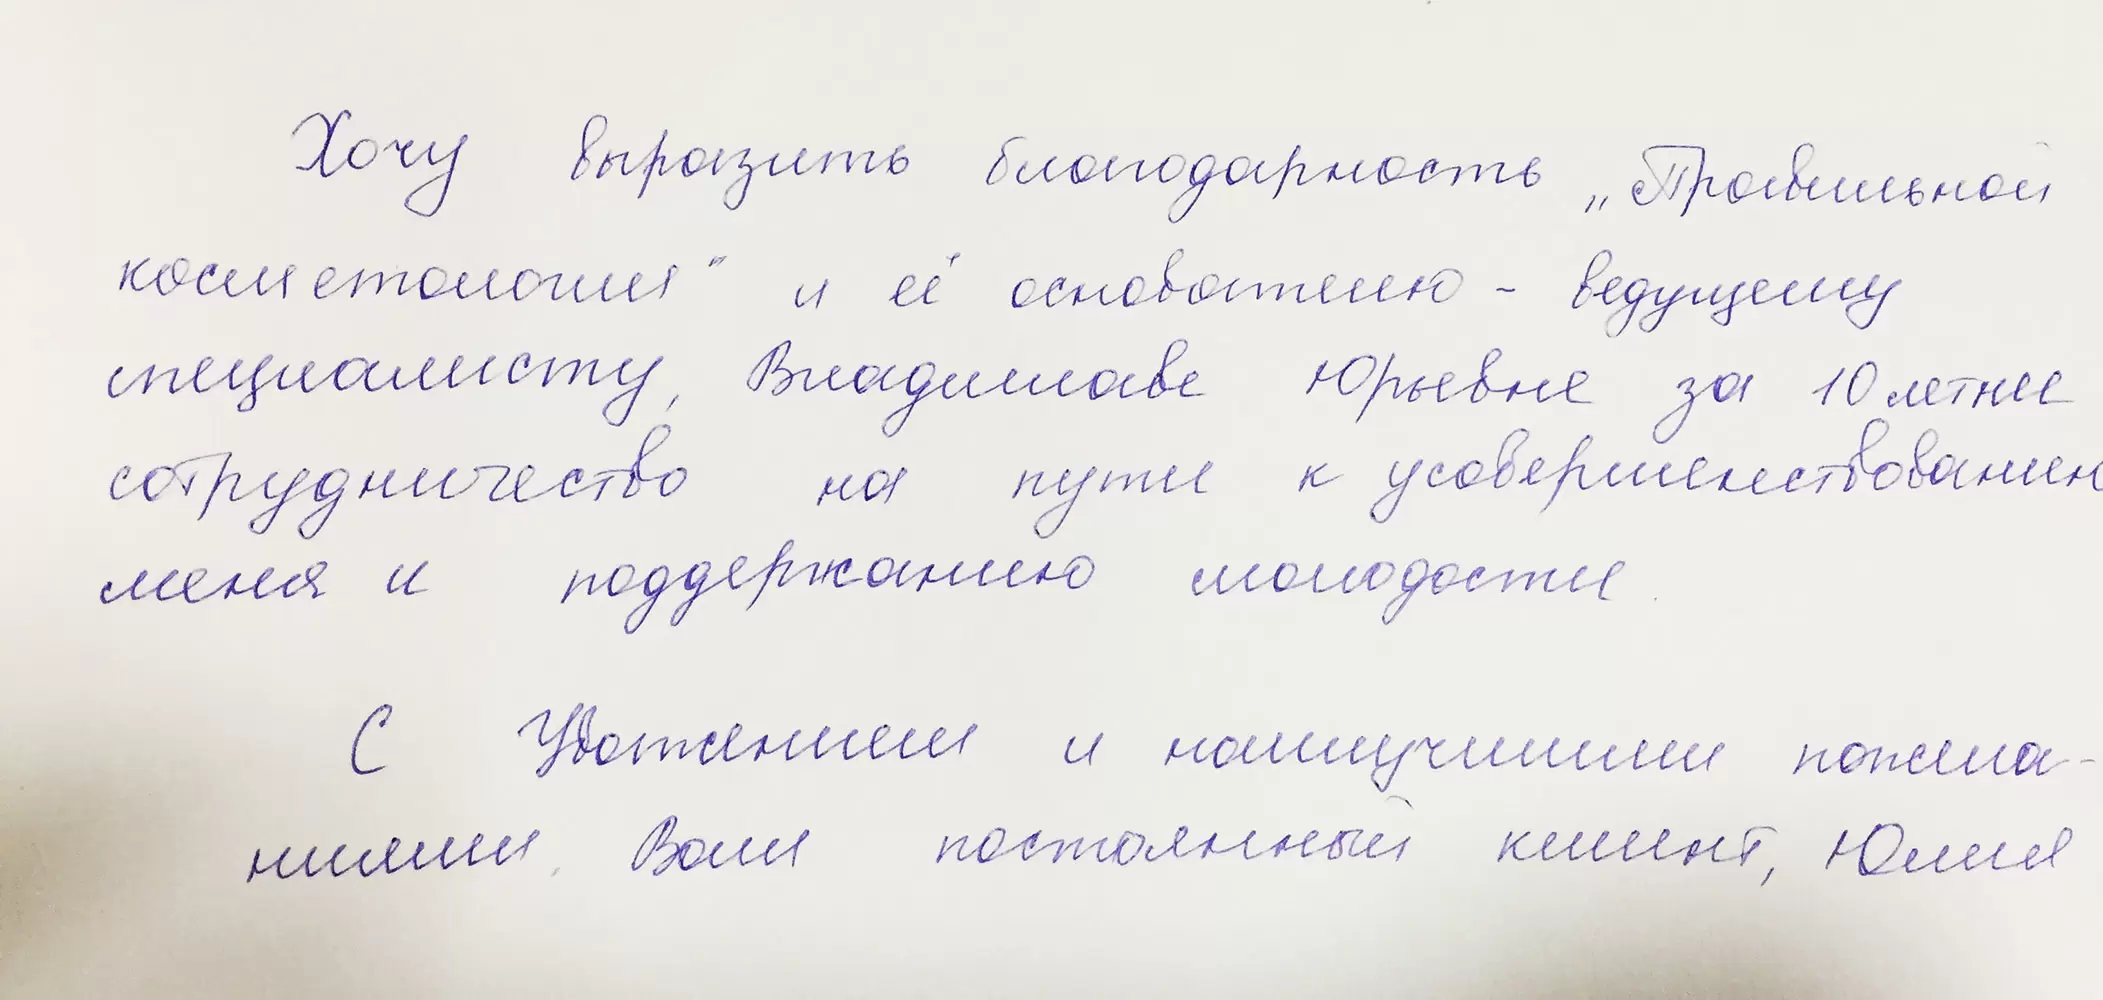 Хочу выразить благодарность „Правильной
косметологии" и её основателю - ведущему
специалисту, Владиславе Юрьевне за 10летнее
сотрудничество на пути к усовершенствованию
меня и поддержанию молодости.
С Уважением и наилучшими пожела-
ниями. Ваш постоянный клиент, Юлия